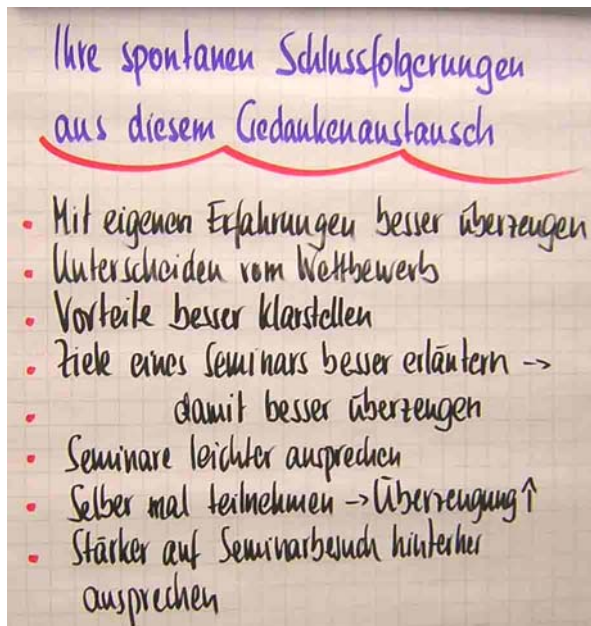 Ihre spontanen Schlussfolgerungen
aus diesem Gedankenaustausch
• Mit eigenen Erfahrungen besser überzeugen
• Unterscheiden vom Wettbewerb
• Vorteile besser klarstellen
• Ziele eines Seminars besser erläutern →
• damit besser überzeugen
• Seminare leichter ansprechen
• Selber mal teilnehmen → Überzeugung ↑
• Stärker auf Seminarbesuch hinterher
ansprechen